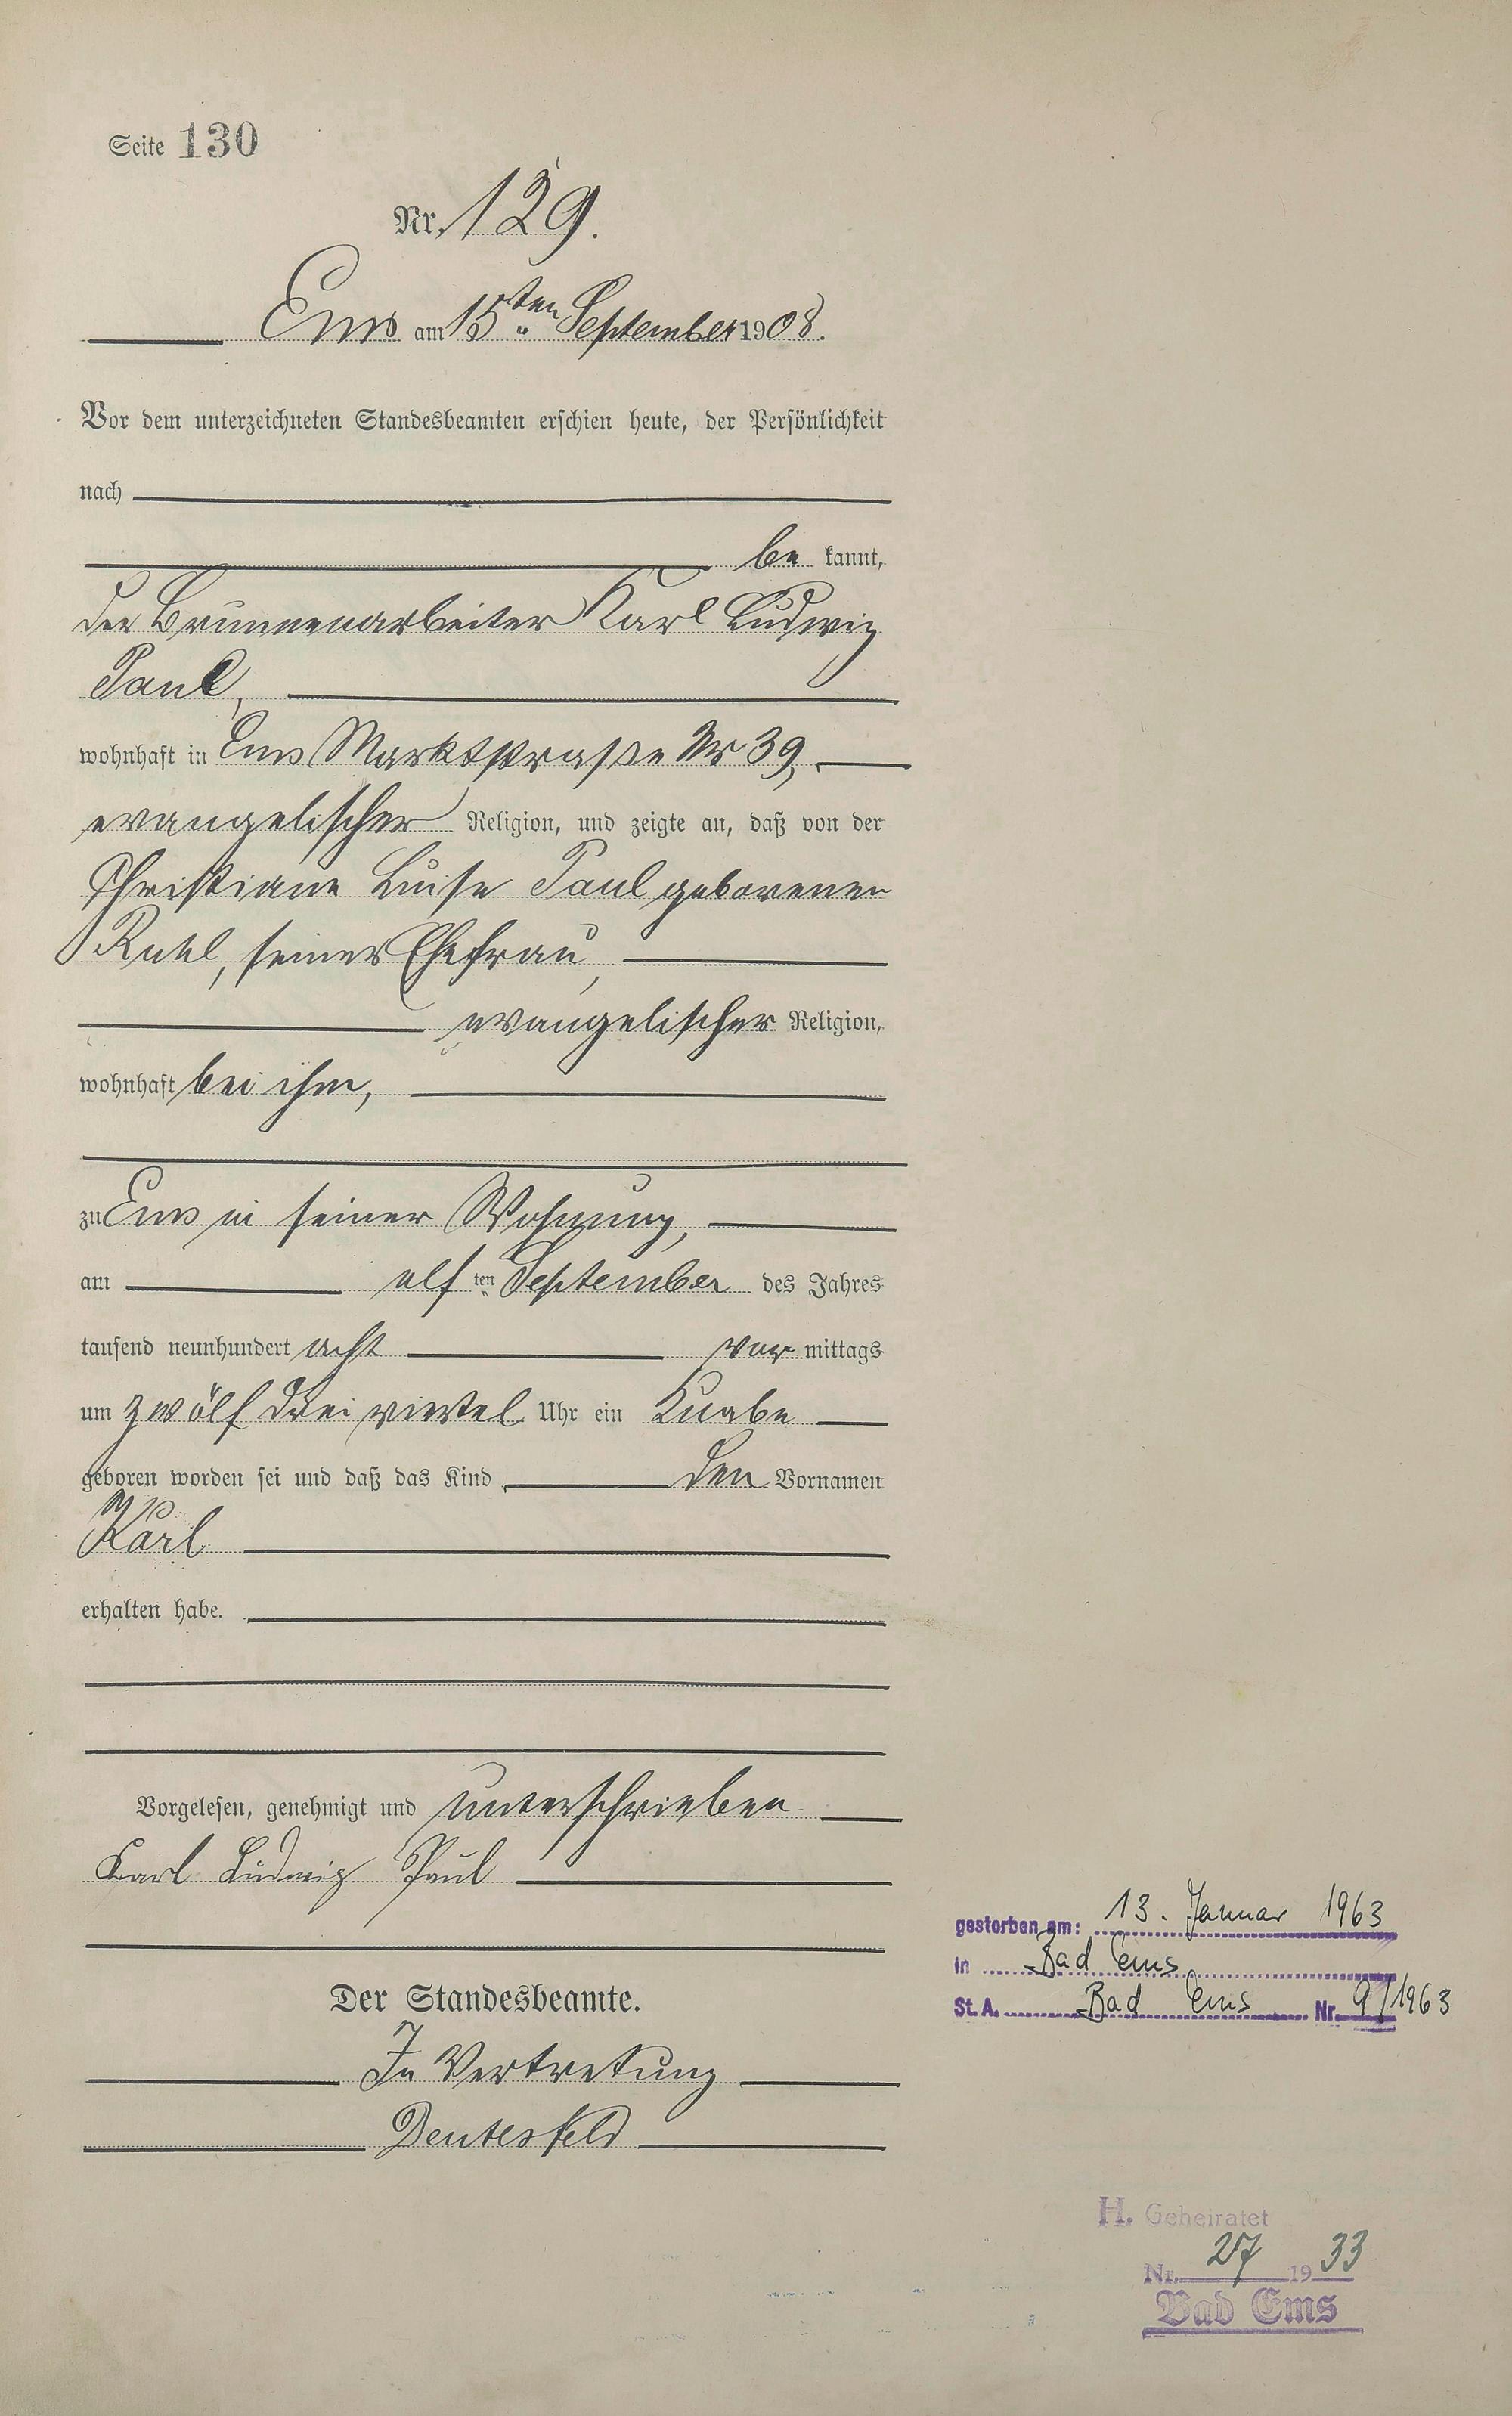 Seite 130
Nr. 129.
Ems am 15ten September 1908.
Vor dem unterzeichneten Standesbeamten erschien heute, der Persönlichkeit
nach
be kannt,
der Brunnenarbeiter Karl Ludwig
Paul,
wohnhaft in Ems Marktstraße Nr 39,
evangelischer Religion, und zeigte an, daß von der
Christiane Luise Paul geborenen
Ruhl, seiner Ehefrau,
evangelischer Religion,
wohnhaft bei ihm,
zu Ems in seiner Wohnung,
am elf ten September des Jahres
tausend neunhundert acht vor mittags
um zwölf drei viertel Uhr ein Knabe
geboren worden sei und daß das Kind den Vornamen
Karl
erhalten habe.
Vorgelesen, genehmigt und unterschrieben
Karl Ludwig Paul
Der Standesbeamte.
In Vertretung
Deutesfeld
gestorben am: 13. Januar 1963
in Bad Ems
St. A. Bad Ems Nr. 9/1963
H. Geheiratet
Nr. 27 1933
Bad Ems